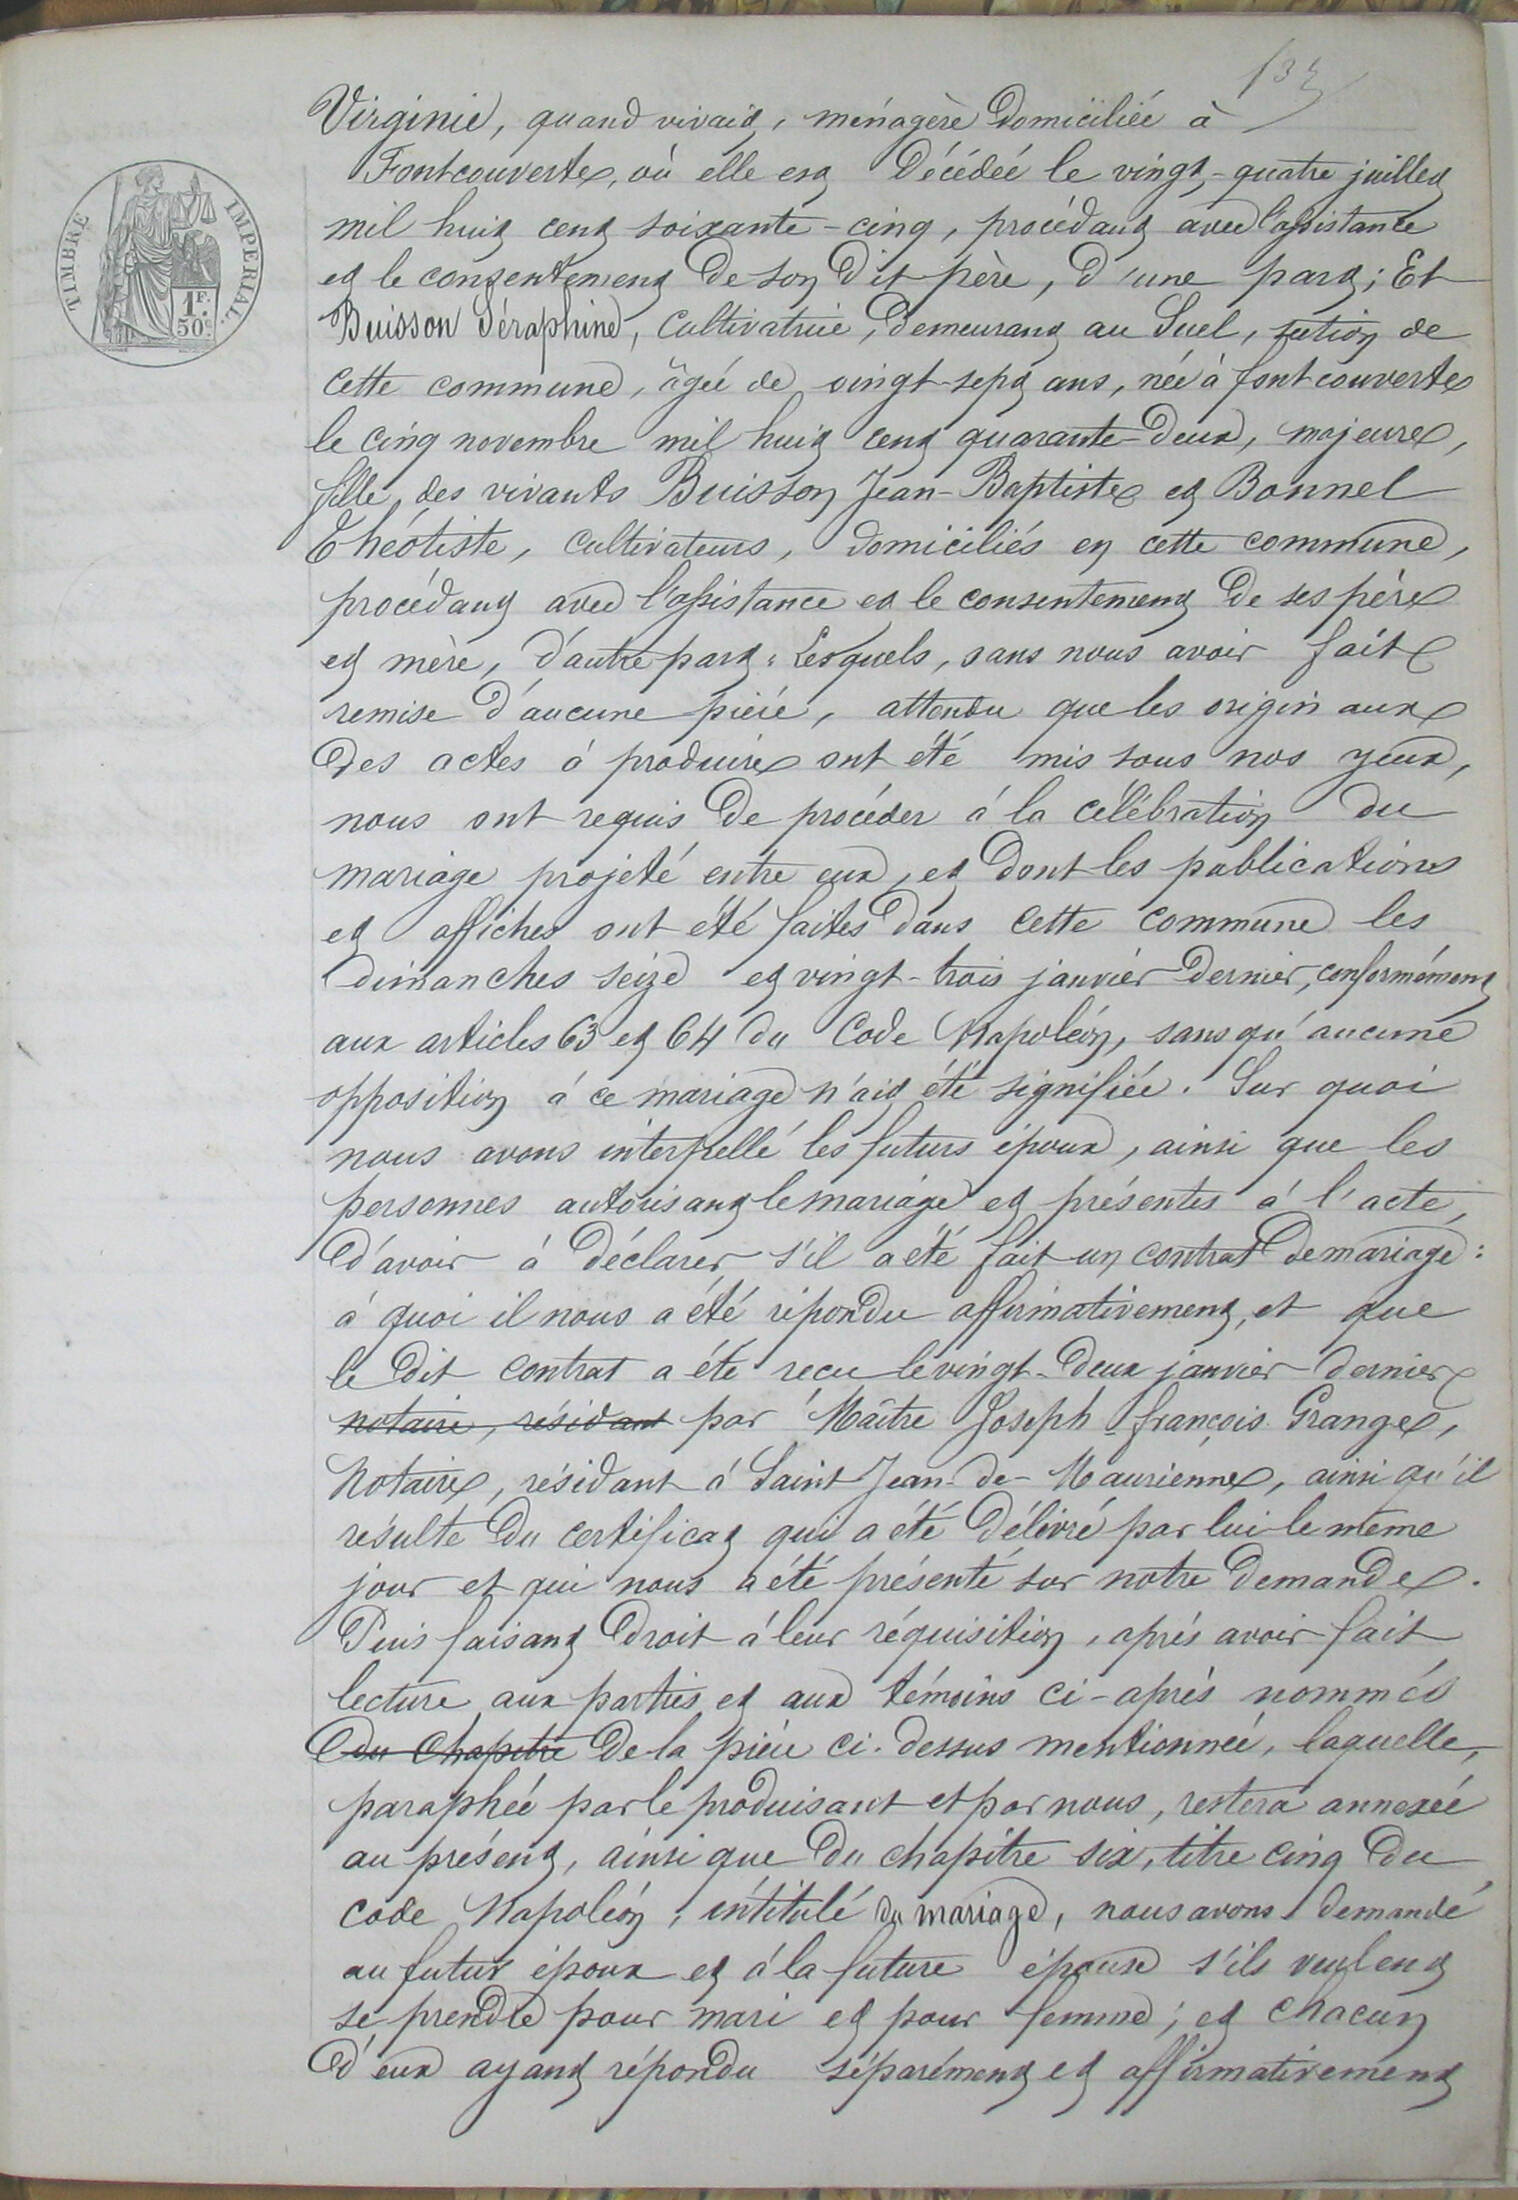 Virginie, quand vivait, ménagère domiciliée à
Fontcouverte, où elle est décédée le vingt-quatre juillet
mil huit cent soixante-cinq, procédant avec l'assistance
et le consentement de son dit père, d'une part; Et
Buisson Séraphine, cultivatrice, demeurant au Suel, section de
cette commune, âgée de vingt-sept ans, née à fontcouverte
le cinq novembre mil huit cent quarante-deux, majeure,
fille des vivants Buisson Jean-Baptiste et Bonnel
Théotiste, cultivateurs, domiciliés en cette commune,
procédant avec l'assistance et le consentement de ses père
et mère, d'autre part. Lesquels, sans nous avoir fait
remise d'aucune pièce, attendu que les originaux
des actes à produire ont été mis sous nos yeux,
nous ont requis de procéder à la célébration du
mariage projeté entre eux, et dont les publications
et affiches ont été faites dans cette commune les
dimanches seize et vingt-trois janvier dernier, conformément
aux articles 63 et 64 du Code Napoléon, sans qu'aucune
opposition à ce mariage n'ait été signifiée. Sur quoi
nous avons interpellé les futurs époux, ainsi que les
personnes autorisant le mariage et présentes à l'acte,
d'avoir à déclarer s'il a été fait un contrat de mariage:
à quoi il nous a été répondu affirmativement, et que
le dit contrat a été reçu le vingt-deux janvier dernier
notaire, résidant par Maître Joseph-françois Grange,
Notaire, résidant à Saint Jean-de-Maurienne, ainsi qu'il
résulte du certificat qui a été délivré par lui le même
jour et qui nous a été présenté sur notre demande.
Puis faisant droit à leur réquisition, après avoir fait
lecture aux parties et aux témoins ci-après nommés
du Chapitre de la pièce ci-dessus mentionnée, laquelle,
paraphée par le produisant et par nous, restera annexée
au présent, ainsi que du chapitre six, titre cinq du
code Napoléon, intitulé du mariage, nous avons demandé
au futur époux et à la future épouse s'ils veulent
se prendre pour mari et pour femme; et chacun
d'eux ayant répondu séparément et affirmativement
TIMBRE IMPERIAL.
1F.
50c.